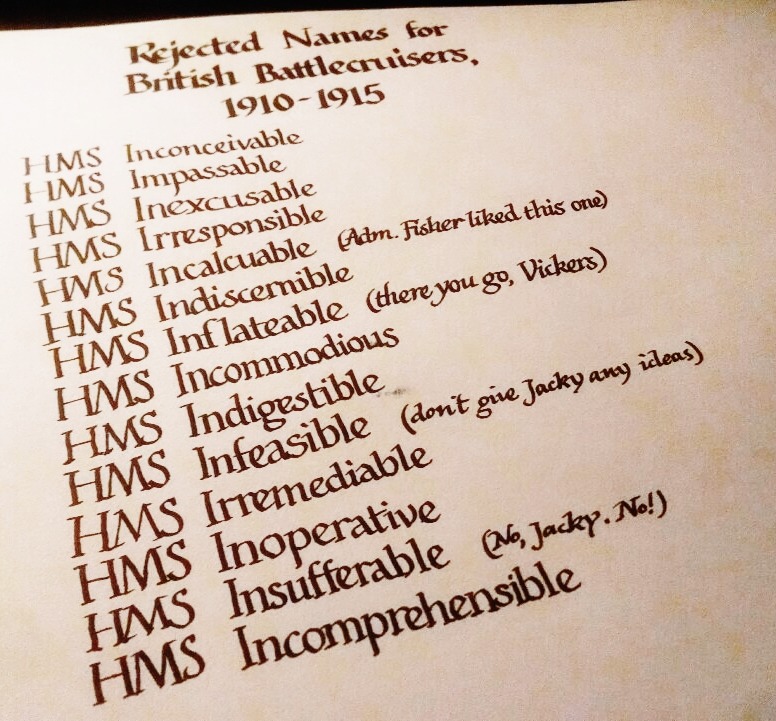 Rejected Names for
British Battlecruisers,
1910-1915
HMS Inconceivable
HMS Impassable
HMS Inexcusable
HMS Irresponsible
HMS Incalcuable (Adm. Fisher liked this one)
HMS Indiscernible
HMS Inflateable (there you go, Vickers)
HMS Incommodious
HMS Indigestible
HMS Infeasible (don't give Jacky any ideas)
HMS Irremediable
HMS Inoperative
HMS Insufferable (No, Jacky. No!)
HMS Incomprehensible